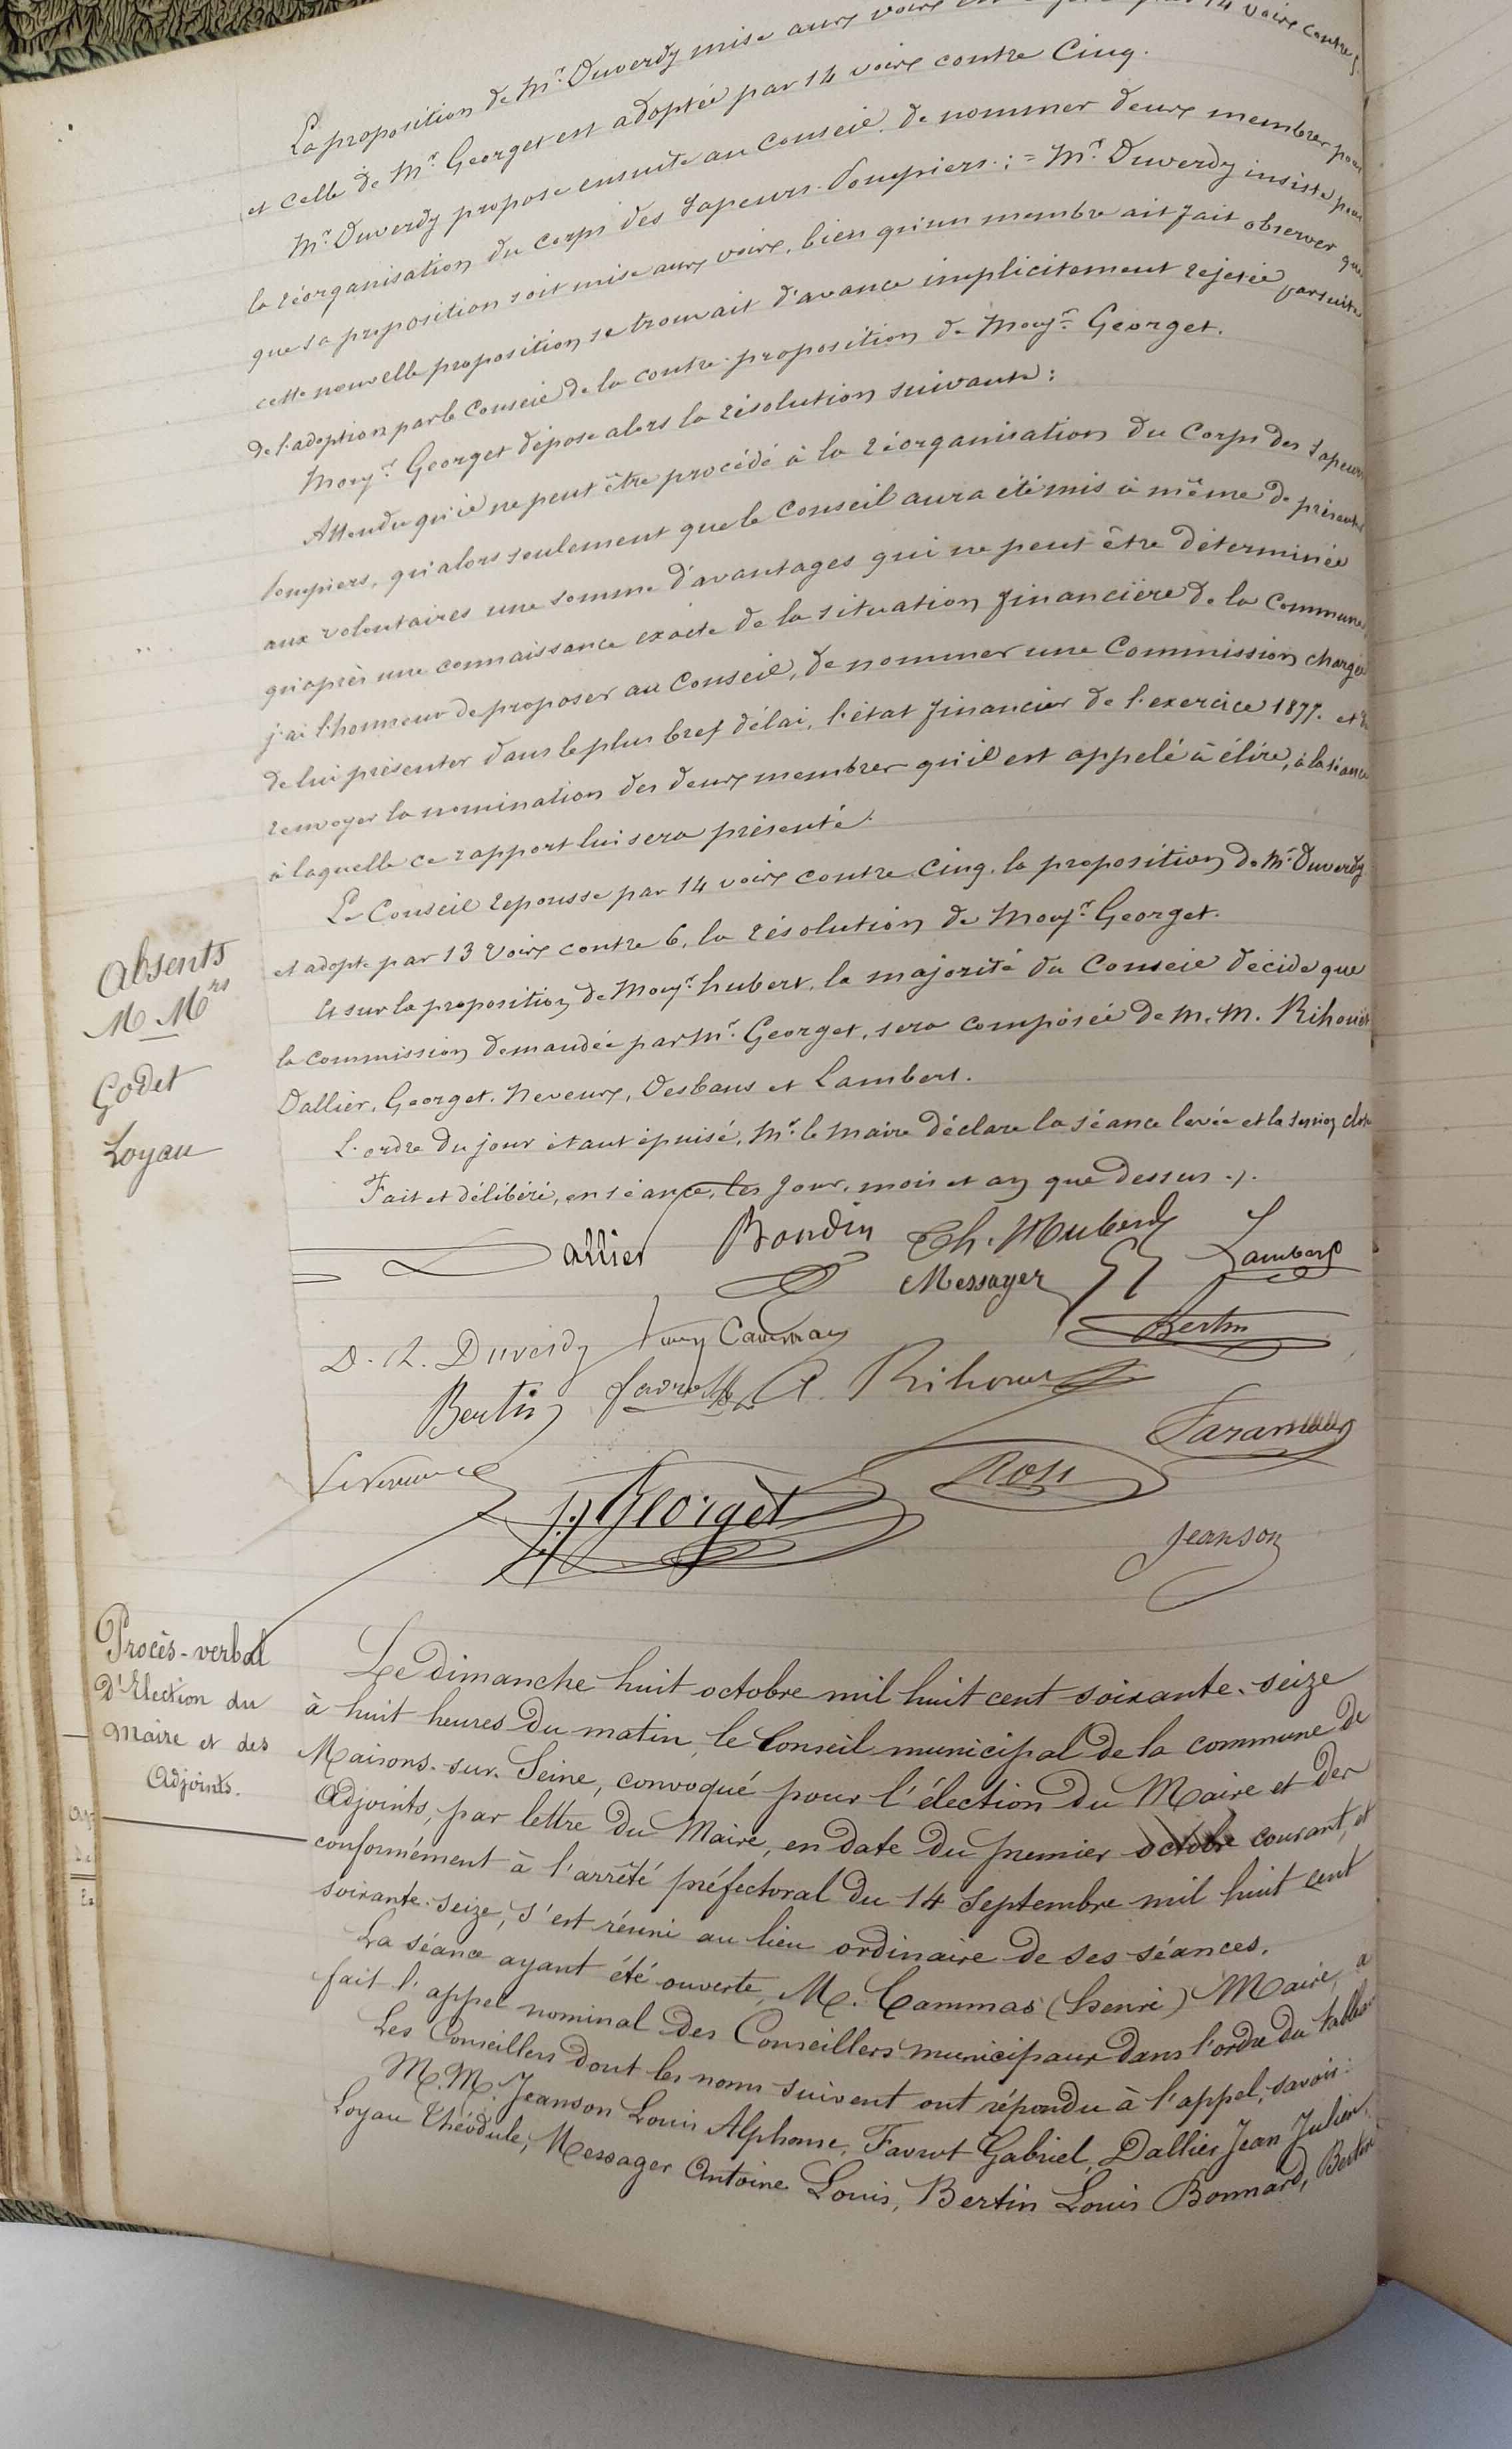 La proposition de Mr. Duverdy mise aux voix par 14 voix contre 5.
et celle de Mr. Georget est adoptée par 14 voix contre Cinq.
Mr. Duverdy propose ensuite au Conseil de nommer deux membres pour
la réorganisation du Corps des Sapeurs-Pompiers.; = Mr. Duverdy insiste pour
que sa proposition soit mise aux voix, bien qu'un membre ait fait observer que
cette nouvelle proposition se trouvait d'avance implicitement rejetée par suite
de l'adoption par le Conseil de la contre-proposition de Monsr. Georget.
Monsr. Georget dépose alors la résolution suivante:
Attendu qu'il ne peut être procédé à la réorganisation du Corps des Sapeurs
Pompiers, qu'alors seulement que le Conseil aura été mis à même de présenter
aux volontaires une somme d'avantages qui ne peut être déterminée
qu'après une connaissance exacte de la situation financière de la Commune,
j'ai l'honneur de proposer au Conseil, de nommer une Commission chargée
de lui présenter dans le plus bref délai, l'état financier de l'exercice 1877. et de
renvoyer la nomination des deux membres qu'il est appelé à élire, à la séance
à laquelle ce rapport lui sera présenté.
Le Conseil repousse par 14 voix contre Cinq, la proposition de Mr. Duverdy
et adopte par 13 Voix contre 6, la résolution de Monsr. Georget.
Et sur la proposition de Monsr. hubert, la majorité du Conseil décide que
la commission demandée par Mr. Georget, sera composée de M. M. Rihouet
Dallier, Georget, Neveux, Desbans et Lambert.
L'ordre du jour étant épuisé, Mr. le Maire déclare la séance levée et la session close
Fait et délibéré, en séance, les jour, mois et an que dessus ./.
Absents
M Mrs
Godet
Loyau
Dallier Bondin Ch. Hubert Lambert
Messager
D. A. Duverdy Cammas Bertin
Bertin Favrot A. Rihouet
Taramaux
Leneveux Georget Rose
Jeanson
Procès-verbal
D'Election du
Maire et des
Adjoints.
Le dimanche huit octobre mil huit cent soixante-seize
à huit heures du matin, le Conseil municipal de la commune de
Maisons-sur-Seine, convoqué pour l'élection du Maire et des
Adjoints, par lettre du Maire, en date du premier octobre courant, et
conformément à l'arrêté préfectoral du 14 Septembre mil huit cent
soixante-seize, s'est réuni au lieu ordinaire de ses séances.
La séance ayant été ouverte, M. Cammas (Henri) Maire, a
fait l'appel nominal des Conseillers municipaux dans l'ordre du tableau
Les Conseillers dont les noms suivent ont répondu à l'appel, savoir:
M.M. Jeanson Louis Alphonse, Favrot Gabriel, Dallier Jean Julien,
Loyau Théodule, Messager Antoine Louis, Bertin Louis Bonnard, Bertin